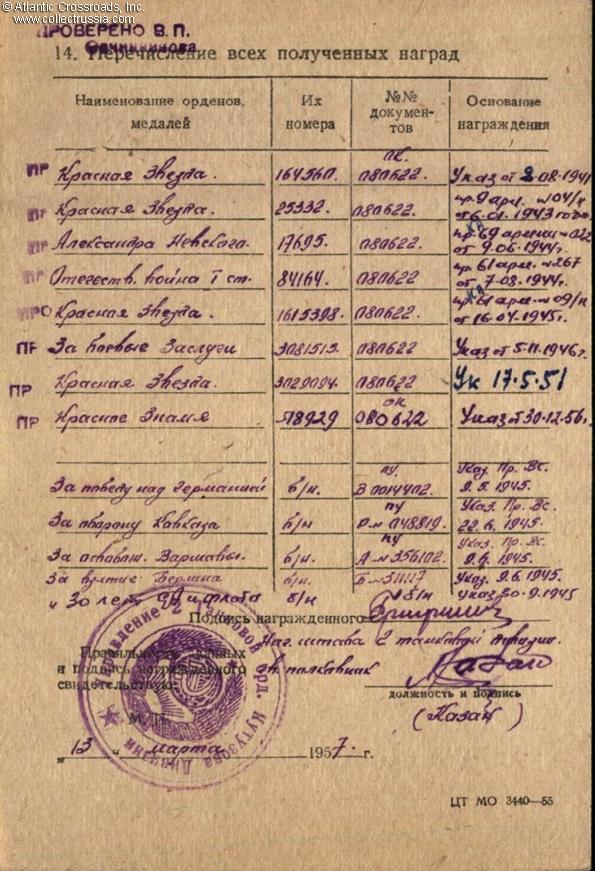 © Atlantic Crossroads, Inc.
www.collectrussia.com
ПРОВЕРЕНО В. П.
Овчинникова
14. Перечисление всех полученных наград
Наименование орденов, медалей Их номера №№ документов Основание награждения
пк.
ПР Красная Звезда. 164560. 080622. Указ от 2-08-1941
ПР Красная Звезда. 25332. 080622. пр. 9 арм. №04/н от 6.01.1943 года
ПР Александра Невского. 17695. 080622. пр. 69 армии от 9.06.1944г.
ПР Отечеств. война I ст. 84164. 080622 пр. 61 арм. №267 от 7-08.1944г.
ПРО Красная Звезда. 1615398. 080622 пр. 61 арм. №09/н от 16-04.1945г.
ПР За боевые Заслуги 3081513. 080622 Указ от 5-11-1946г.
ПР Красная Звезда. 3029094. 080622 Ук 17.5.51
ок
ПР Красное Знамя 080622 Указ от 30.12.56г.
пу.
За победу над Германией б/н. В 0014402. Указ. Пр. Вс. 9.5.1945.
пу
За оборону Кавказа б/н. 048819. Указ. Пр. Вс. 1945.
пу
За освобож. Варшавы. б/н. А № 356102. Указ. Пр. Вс. 9.6.1945.
За взятие Берлина б/н. Б № 31117 Указ. 9.6.1945.
и 30 лет СА и флота б/н б/н
Подпись награжденного
Нач. штаба 2 танковой дивизии
Правильность данных и подпись награжденного свидетельствую:
полковник
должность и подпись
(Казак)
М. П.
Управление 2 танковой орд. Кутузова Дивизии
„13 „ марта 1957. г.
ЦТ МО 3440—55